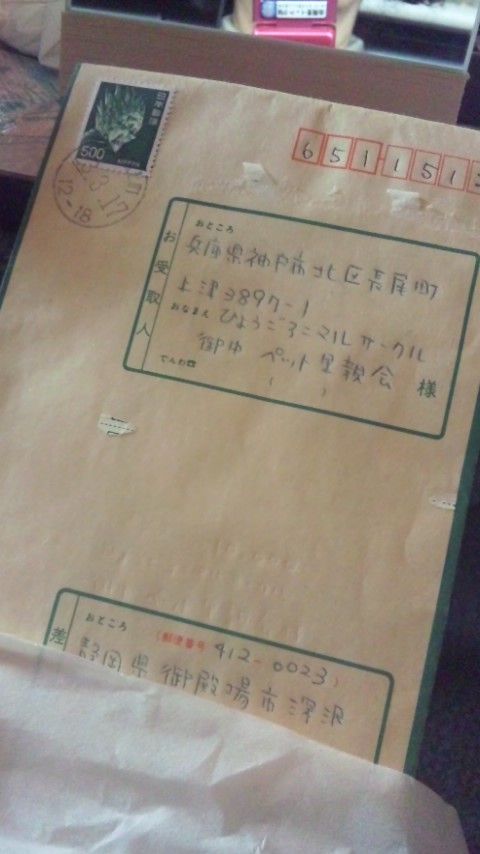 日本郵便
500
NIPPON
12-18
651151
お受取人
おところ
兵庫県神戸市北区長尾町
上津3897-1
おなまえ
ひょうごアニマルサークル
御中 ペット里親会 様
でんわ
( )
差
おところ
(郵便番号 412-0023)
静岡県御殿場市深沢